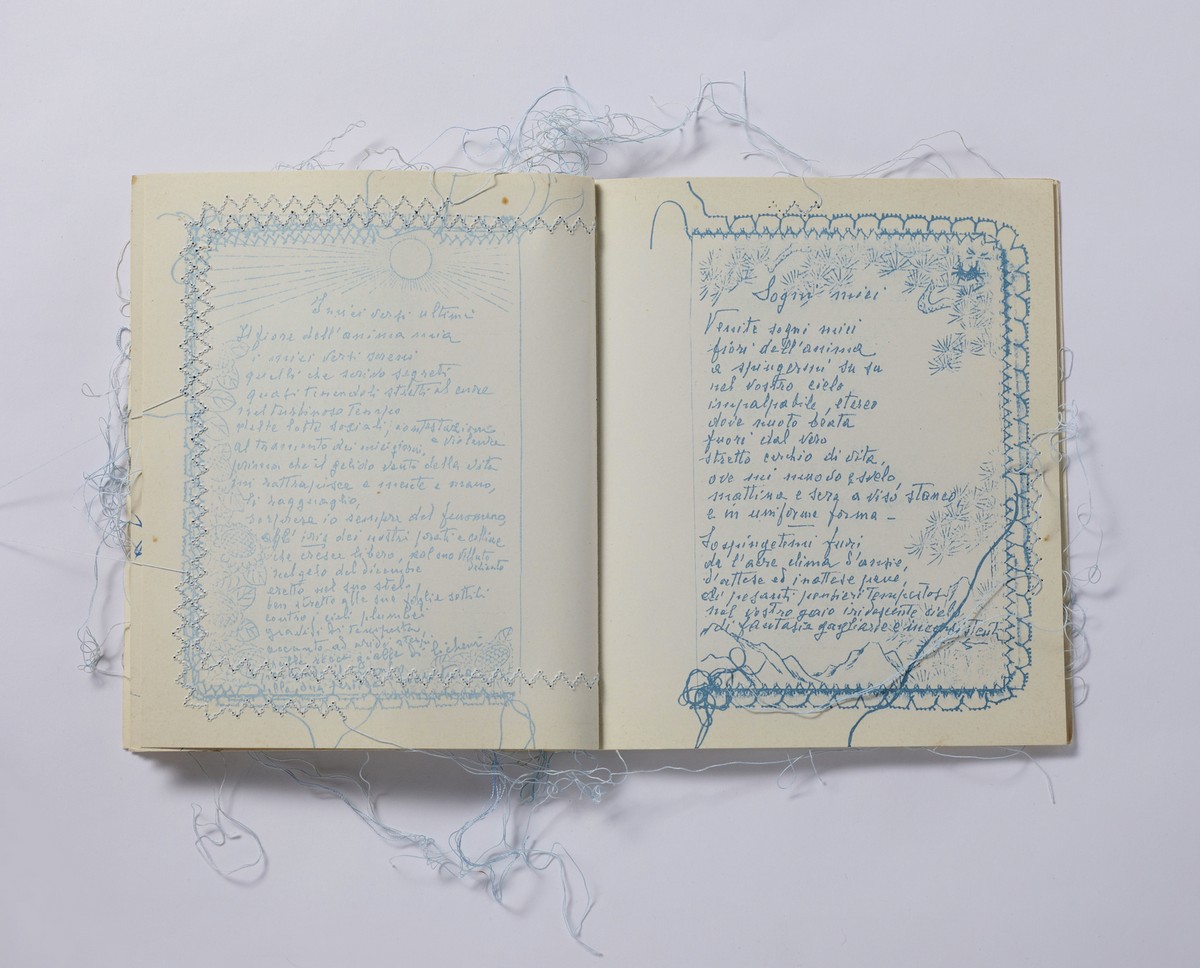 I miei versi ultimi
Il fiore dell'anima mia
i miei versi sereni
quelli che scrivo segreti
quasi tenendoli stretti al cuore
nel turbinoso tempo
delle lotte sociali, contestazione
e violenze
al tramonto dei miei giorni,
prima che il gelido vento della vita
mi rattrappisca e mente e mano,
li ragguaglio,
sorpresa io sempre del fenomeno,
agli iris dei nostri prati e colline
che cresce libero, sul suo
nel gelo del dicembre
eretto nel suo stelo
ben stretto alle sue foglie sottili
contro ciel plumbei
gravidi di tempesta
accanto ad
Sogni miei
Venite sogni miei
fiori dell'anima
a spingermi su su
nel vostro cielo
impalpabile, etereo
dove nuoto beata
fuori dal vero
stretto cerchio di vita,
ove mi muovo e svelo,
mattina e sera a viso stanco,
e in uniforme forma -
Sospingetemi fuori
da l'acre clima d'ansie,
d'attese ed inattese pene,
di pesanti pensieri tempestosi
nel vostro gaio iridescente cielo
di fantasie gagliarde e inconsistenti